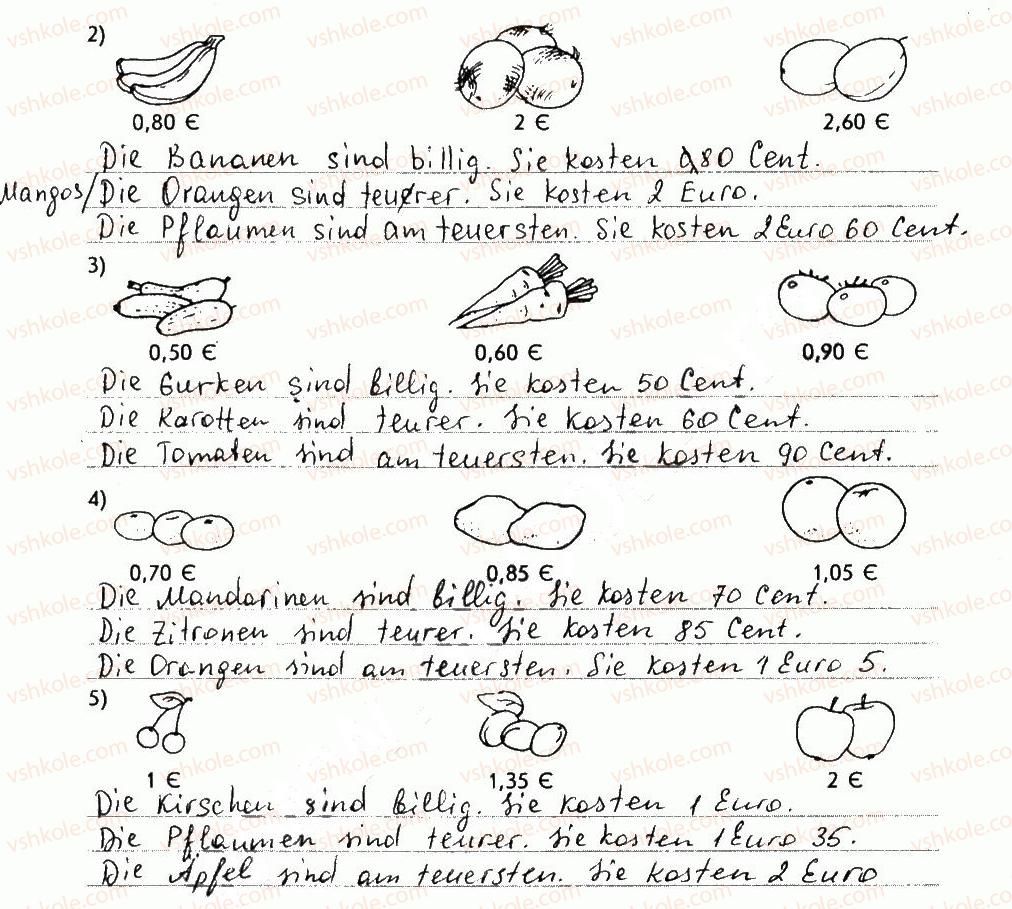 2)
0,80 € 2 € 2,60 €
Die Bananen sind billig. Sie kosten 0,80 Cent.
Mangos/Die Orangen sind teurer. Sie kosten 2 Euro.
Die Pflaumen sind am teuersten. Sie kosten 2 Euro 60 Cent.
3)
0,50 € 0,60 € 0,90 €
Die Gurken sind billig. Sie kosten 50 Cent.
Die Karotten sind teurer. Sie kosten 60 Cent.
Die Tomaten sind am teuersten. Sie kosten 90 Cent.
4)
0,70 € 0,85 € 1,05 €
Die Mandarinen sind billig. Sie kosten 70 Cent.
Die Zitronen sind teurer. Sie kosten 85 Cent.
Die Orangen sind am teuersten. Sie kosten 1 Euro 5.
5)
1 € 1,35 € 2 €
Die Kirschen sind billig. Sie kosten 1 Euro.
Die Pflaumen sind teurer. Sie kosten 1 Euro 35.
Die Äpfel sind am teuersten. Sie kosten 2 Euro
vshkole.com